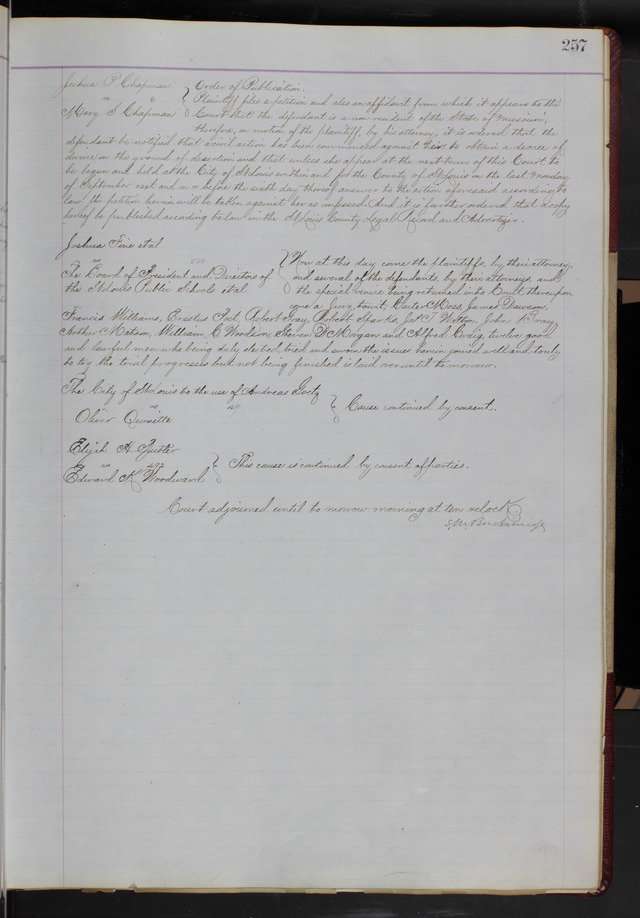 257
Joshua P. Chapman } Order of Publication.
vs } Plaintiff files a petition and also an affidavit from which it appears to the
Mary S. Chapman } Court that the defendant is a non resident of the State of Missouri,
therefore, on motion of the plaintiff, by his attorney, it is ordered that the
defendant be notified that a civil action has been commenced against her to obtain a decree of
divorce on the ground of desertion and that unless she appear at the next term of this Court to
be begun and held at the City of St Louis within and for the County of St Louis on the last Monday
of September next and on or before the sixth day thereof answer to the action aforesaid according to
law the petition herein will be taken against her as confessed. And it is further ordered that a copy
hereof be published according to law in the St Louis County Legal Record and Advertiser.
Joshua Fine et al } Now at this day come the plaintiffs, by their attorney,
vs
The Board of President and Directors of } and several of the defendants, by their attorneys, and
the St Louis Public Schools et al } the special venire being returned into Court thereupon
came a Jury, to wit, Carter Moss, James Dawson,
Francis Williams, Erastus Post, Robert Gray, Robert Sparks, Watson, John
Arthur Matson, William C Woodson, Steven D Morgan and Alfred Craig, twelve good
and lawful men who being duly elected, tried and sworn the issues herein joined well and truly
to try the trial progresses but not being finished is laid over until to morrow.
The City of St Louis to the use of Andreas Goetz } Cause continued by consent.
vs
Oliver Quinette
Elijah H
vs } This cause is continued by consent of parties.
Edward K Woodward
Court adjourned until to morrow morning at ten o'clock